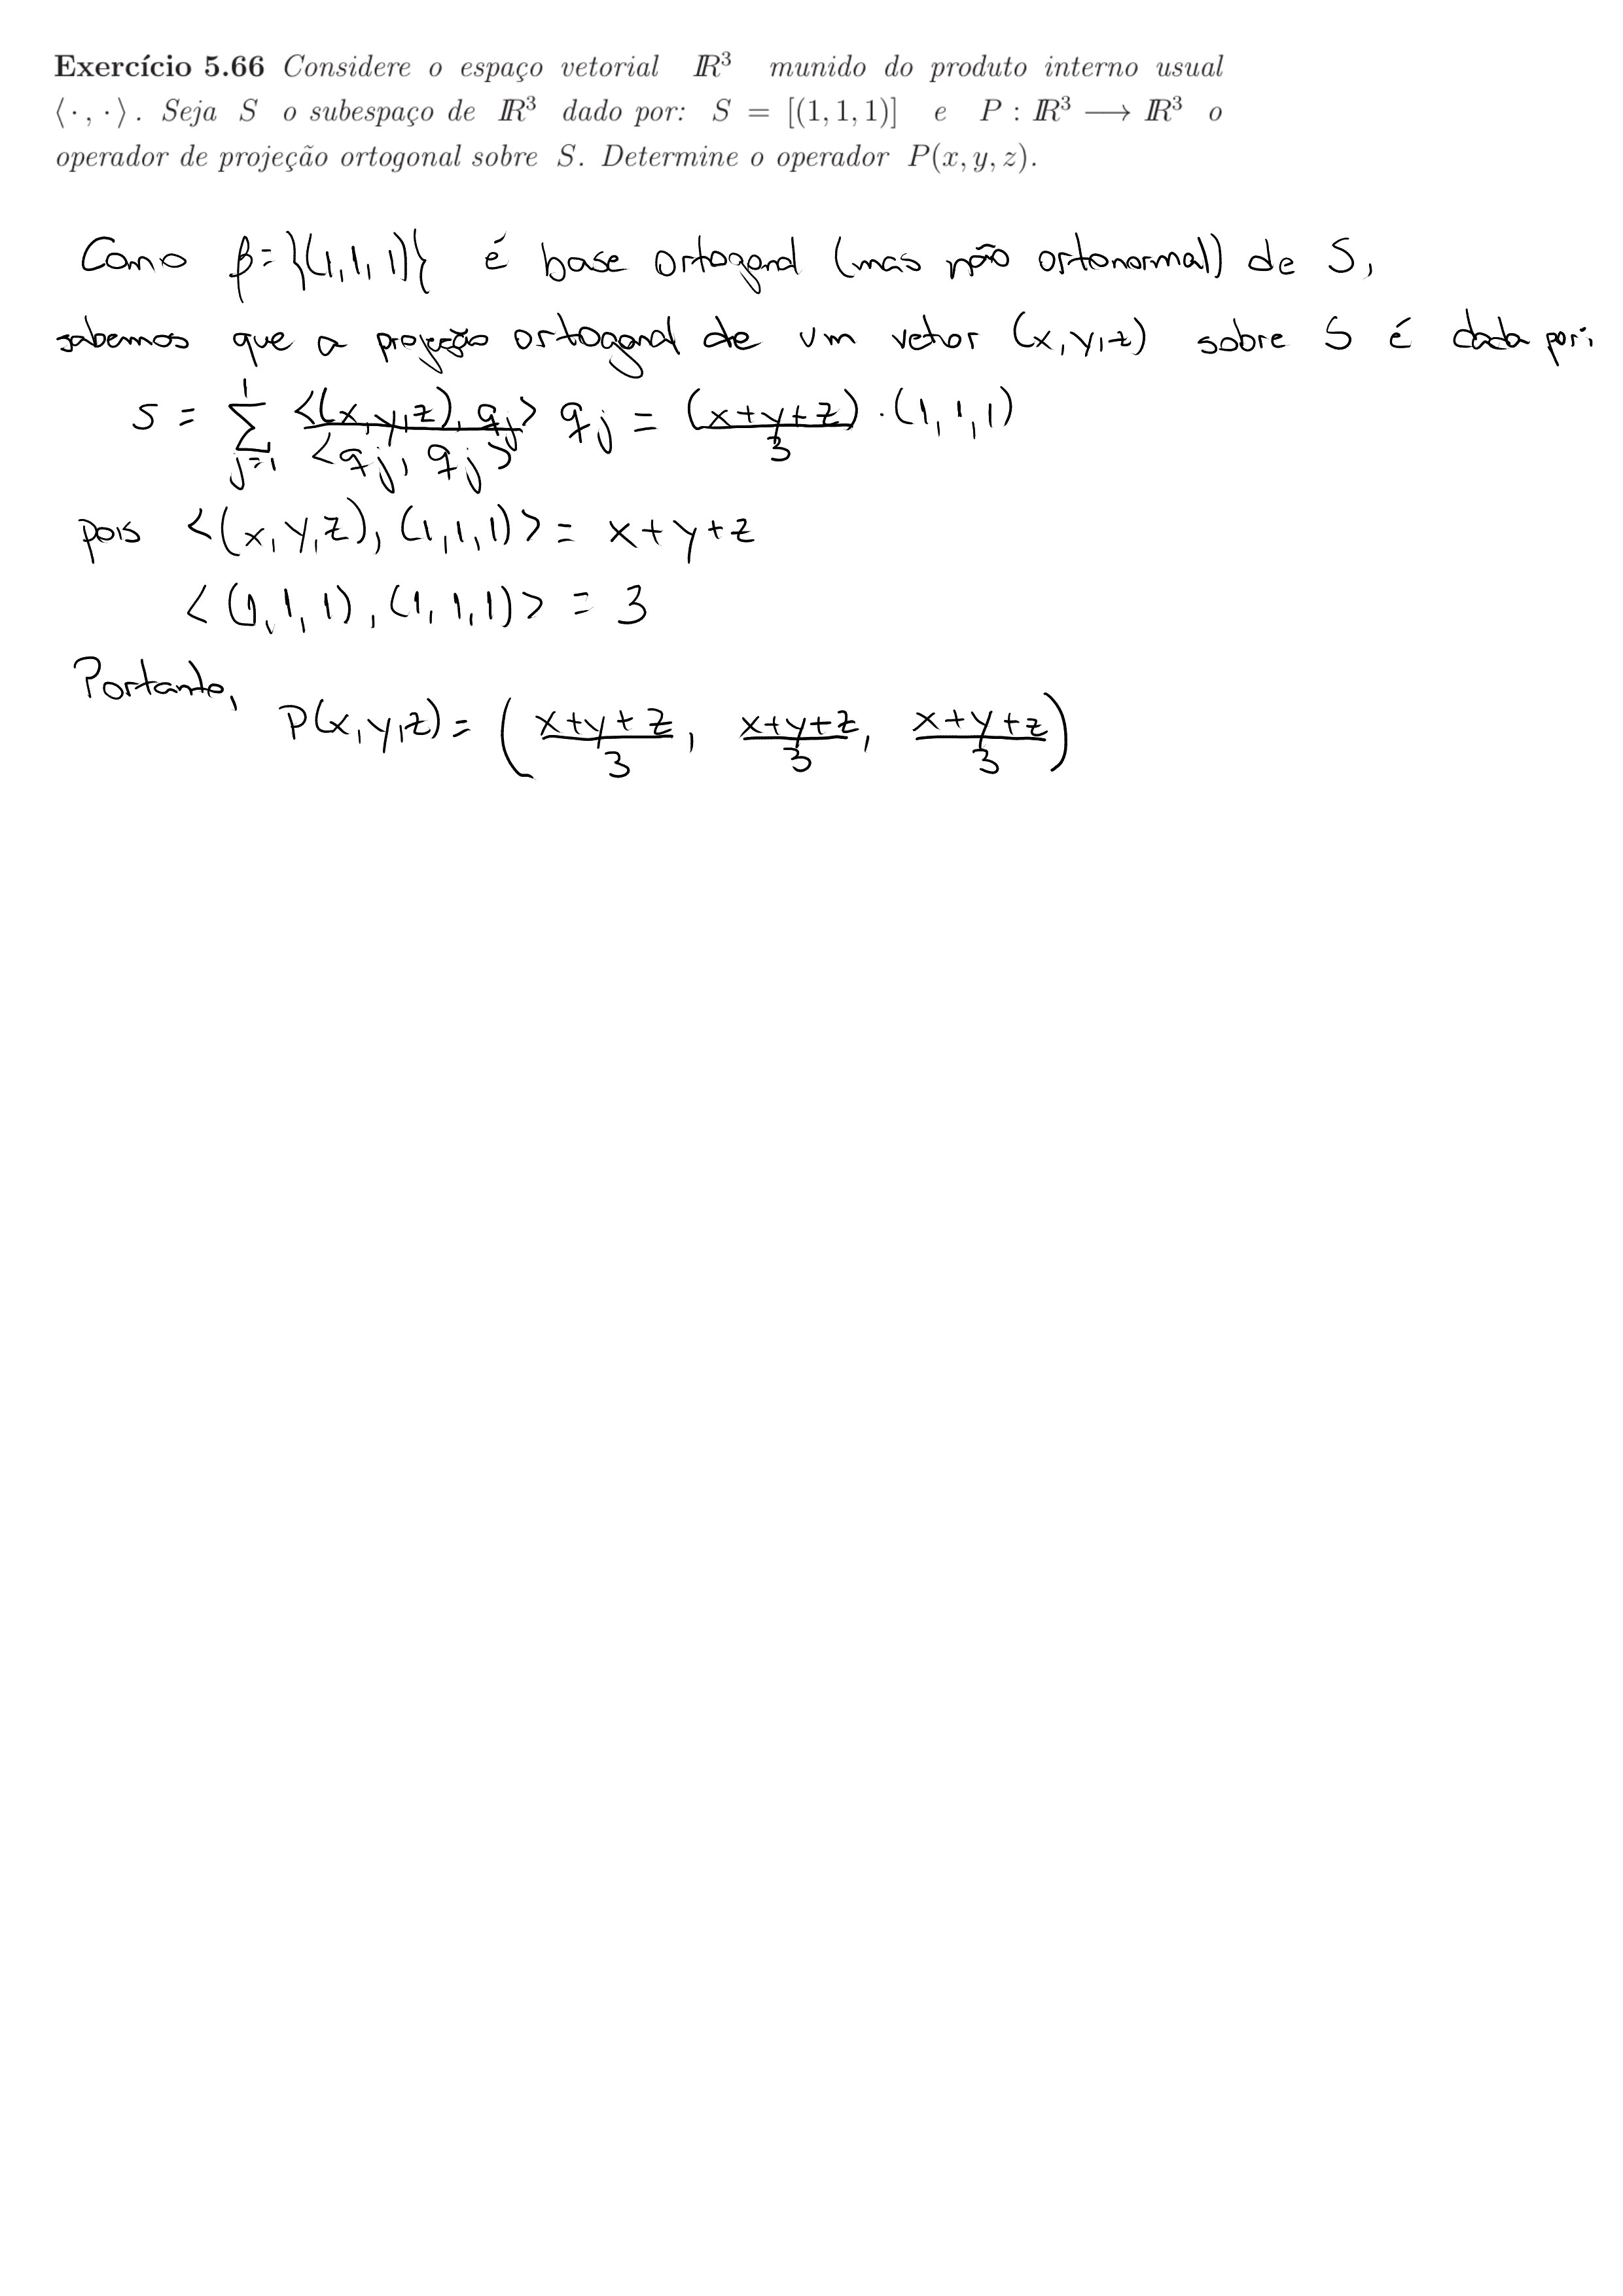 Exercício 5.66 Considere o espaço vetorial ℝ³ munido do produto interno usual
⟨·,·⟩. Seja S o subespaço de ℝ³ dado por: S = [(1, 1, 1)] e P : ℝ³ ⟶ ℝ³ o
operador de projeção ortogonal sobre S. Determine o operador P(x, y, z).
Como β = {(1,1,1)} é base ortogonal (mas não ortonormal) de S,
sabemos que a projeção ortogonal de um vetor (x,y,z) sobre S é dada por:
s = ∑_{j=1}^{1} <(x,y,z), q_j>/<q_j, q_j> q_j = (x+y+z)/3 · (1,1,1)
pois <(x,y,z), (1,1,1)> = x+y+z
<(1,1,1), (1,1,1)> = 3
Portanto,
P(x,y,z) = ( (x+y+z)/3, (x+y+z)/3, (x+y+z)/3 )